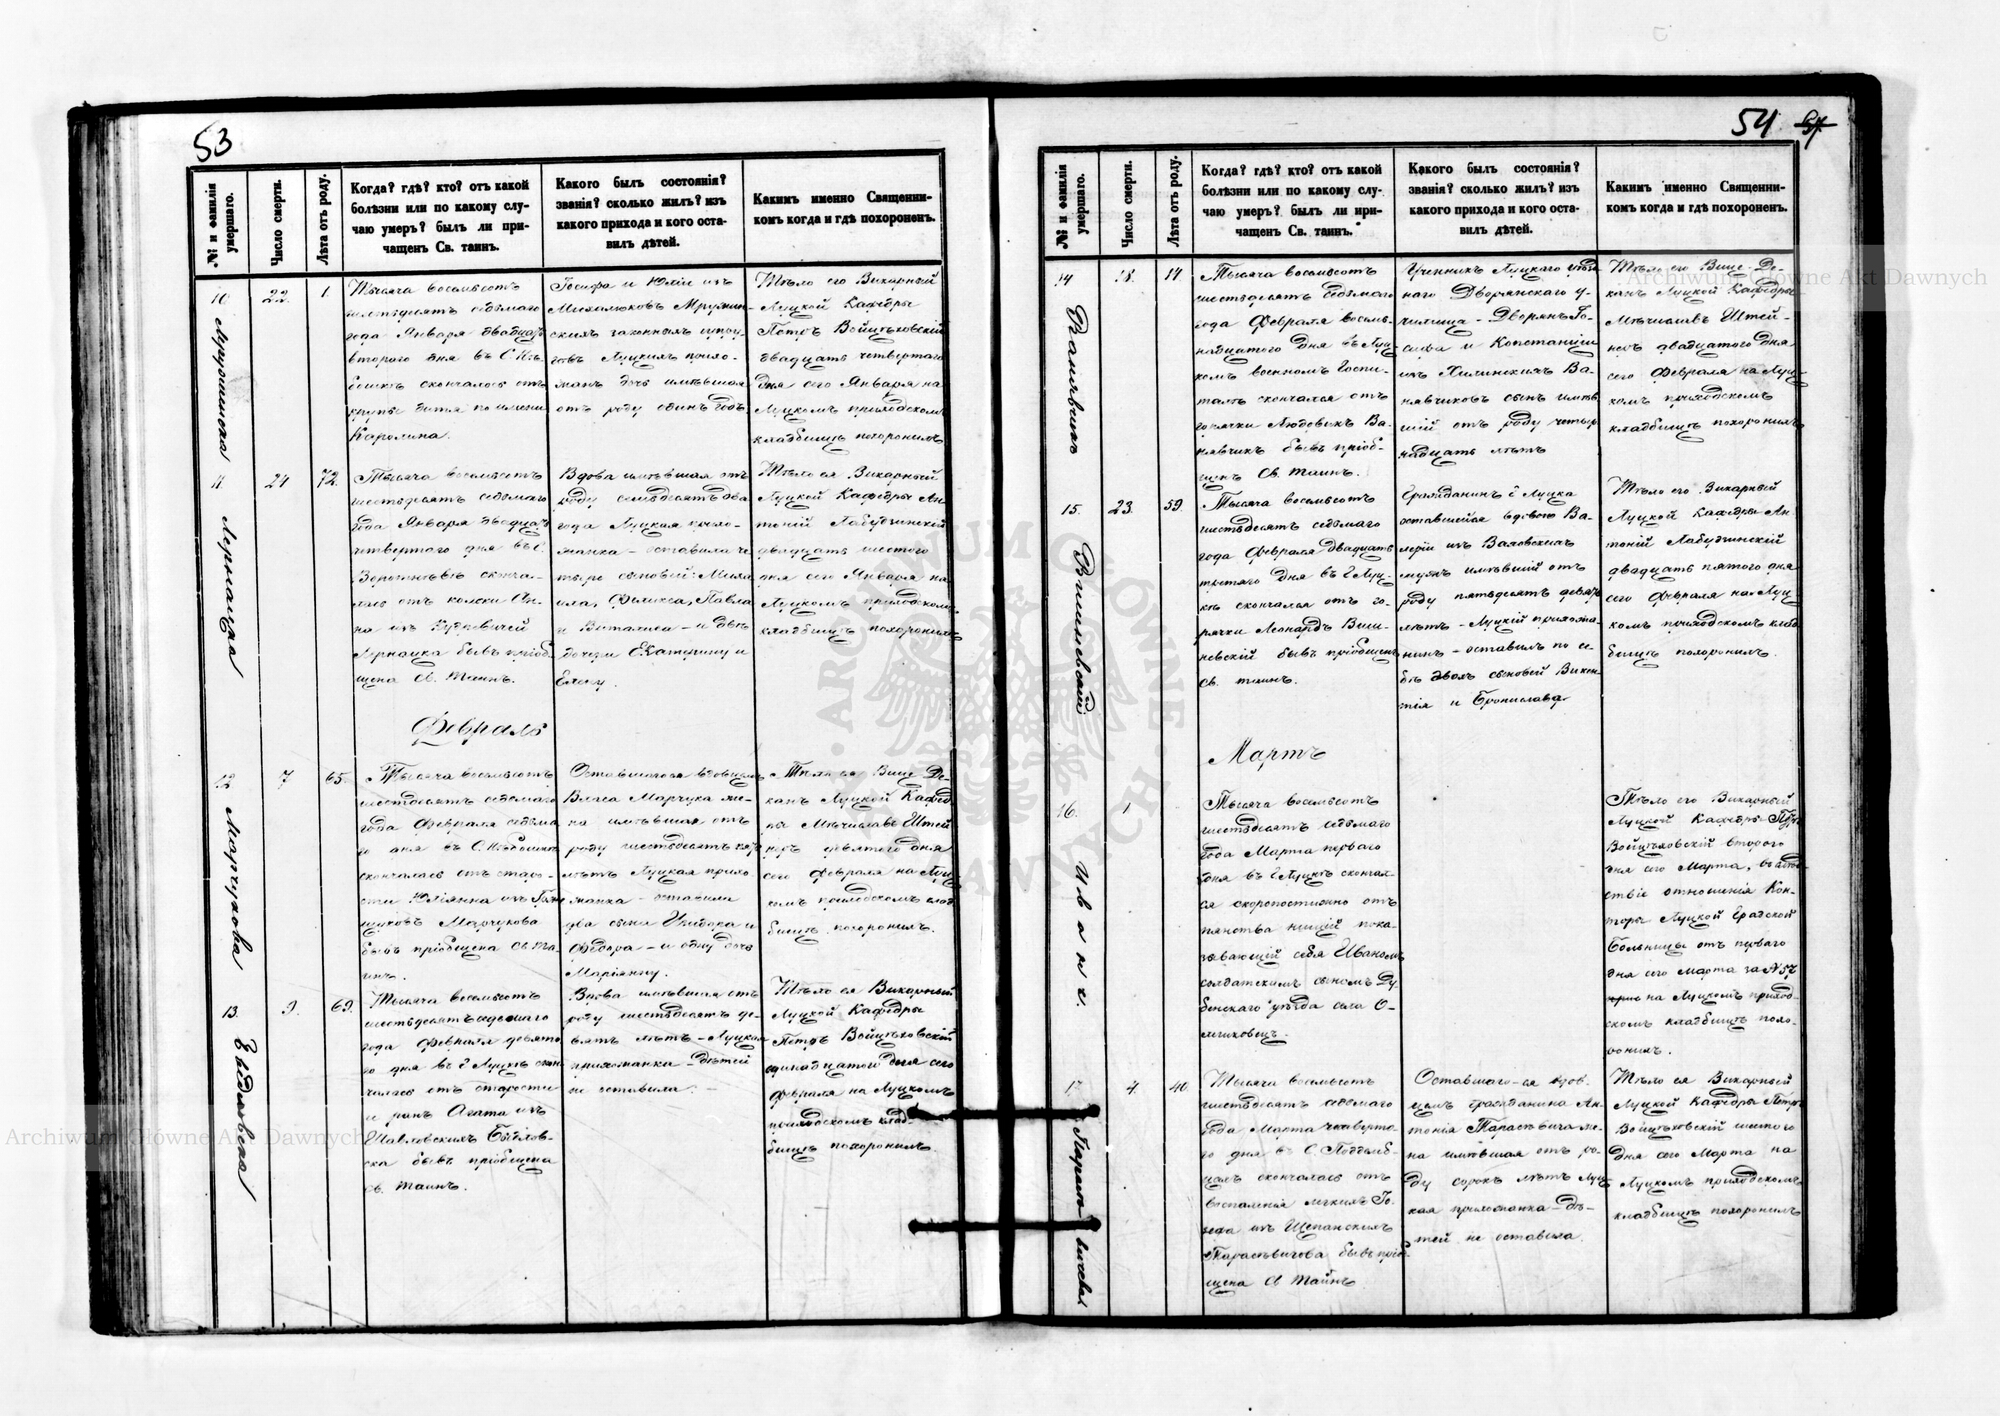 53
№ и фамилія умершаго.
Число смерти.
Лѣта отъ роду.
Когда? гдѣ? кто? отъ какой
болѣзни или по какому слу-
чаю умеръ? былъ ли при-
чащенъ Св. таинъ.
Какого былъ состоянія?
званія? сколько жилъ? изъ
какого прихода и кого оста-
вилъ дѣтей.
Каимъ именно Священни-
комъ когда и гдѣ похороненъ.
10
22.
1.
Тысяча восемьсотъ
шестьдесятъ седьмаго
года Января двадцать
втораго дня въ С.
скончалась отъ
крупы дитя по имени
Каролина.
Іосифа и Юліи изъ
законныхъ
Луцкихъ прихо-
жанъ дочь имѣвшая
отъ роду одинъ годъ.
Тѣло его Викарный
Луцкой Кафедры
Петръ Войцѣховскій
двадцать четвертаго
дня сего Января на
Луцкомъ приходскомъ
кладбищѣ похоронилъ
11.
24
72.
Тысяча восемьсотъ
шестьдесятъ седьмаго
года Января двадцать
четвертаго дня въ С.
сконча-
лась отъ колики Ан-
на изъ
быв пріоб-
щена Св. Таинъ.
Вдова имѣвшая отъ
роду семьдесятъ два
года Луцкая прихо-
жанка – оставила че-
тыре сыновей: Миха-
ила, Феликса, Павла
и Виталиса – и двѣ
дочери Екатерину и
Елену.
Тѣло ея Викарный
Луцкой Кафедры Ан-
тоній Лабудзинскій
двадцать шестого
дня сего Января на
Луцкомъ приходскомъ
кладбищѣ похоронилъ
Февраль
12
Марчукова
7
65.
Тысяча восемьсотъ
шестьдесятъ седьмаго
года Февраля седьма-
го дня въ С.
скончалась отъ старо-
сти Юліянна изъ
Марчукова
бывъ пріобщена Св. Та-
инъ.
Оставшагося вдовцемъ
Власа Марчука же-
на имѣвшая отъ
роду шестьдесятъ пять
лѣтъ Луцкая прихо-
жанка – оставила
два сына Исидора и
Федора – и одну дочь
Маріянну.
Тѣло ея Вице Де-
канъ Луцкой Кафед-
ры Мѣчиславъ Штей-
неръ девятого дня
сего Февраля на Луц-
комъ приходскомъ клад-
бищѣ похоронилъ.
13.
9.
69.
Тысяча восемьсотъ
шестьдесятъ седьмаго
года Февраля девято-
го дня въ г. Луцкѣ скон-
чалась отъ старости
и ранъ Агата изъ
Павловскихъ
ска бывъ пріобщена
Св. Таинъ.
Вдова имѣвшая отъ
роду шестьдесятъ де-
вять лѣтъ – Луцкая
прихожанка – дѣтей
не оставила. –
Тѣло ея Викарный
Луцкой Кафедры
Петръ Войцѣховскій
одинадцатого дня сего
февраля на Луцкомъ
приходскомъ клад-
бищѣ похоронилъ.
54
№ и фамилія умершаго.
Число смерти.
Лѣта отъ роду.
Когда? гдѣ? кто? отъ какой
болѣзни или по какому слу-
чаю умеръ? былъ ли при-
чащенъ Св. таинъ.
Какого былъ состоянія?
званія? сколько жилъ? изъ
какого прихода и кого оста-
вилъ дѣтей.
Какимъ именно Священни-
комъ когда и гдѣ похороненъ.
14
18.
14
Тысяча восемьсотъ
шестьдесятъ седьмаго
года Февраля восемь-
надцатого дня въ Луц-
комъ военномъ Госпи-
талѣ скончался отъ
горячки Людовикъ Ва-
нявчикъ бывъ пріоб-
щенъ Св. Таинъ.
Ученикъ Луцкаго уѣзд-
наго Дворянскаго у-
чилища – Дворянъ Іо-
сифа и Констанціи
изъ Хилинскихъ Ва-
нявчиковъ сынъ имѣв-
шій отъ роду четыр-
надцать лѣтъ
Тѣло его Вице-Де-
канъ Луцкой Кафедры
Мѣчиславъ Штей-
неръ двадцатого дня
сего Февраля на Луц-
комъ приходскомъ
кладбищѣ похоронилъ
15.
23.
59.
Тысяча восемьсотъ
шестьдесятъ седьмаго
года Февраля двадцать
третяго дня въ г. Луц-
кѣ скончался отъ го-
рячки Леонардъ Виш-
невскій бывъ пріобщенъ
Св. таинъ.
Гражданинъ г. Луцка
оставшейся вдовою Ва-
леріи изъ
мужъ имѣвшій отъ
роду пятьдесятъ девять
лѣтъ – Луцкій прихожа-
нинъ – оставилъ по се-
бѣ двохъ сыновей Викен-
тія и Бронислава
Тѣло его Викарный
Луцкой Кафедры Ан-
тоній Лабудзинскій
двадцать пятого дня
сего Февраля на Луц-
комъ приходскомъ клад-
бищѣ похоронилъ.
Мартъ
16.
Иванъ.
1
Тысяча восемьсотъ
шестьдесятъ седьмаго
года Марта перваго
дня въ г. Луцкѣ скончал-
ся скоропостижно отъ
пянства нищій пока-
зывающій себя Иваномъ
солдатскимъ сыномъ Ду-
бенскаго уѣзда села О-
лыковецъ.
Тѣло его Викарный
Луцкой Кафедры Петръ
Войцѣховскій второго
дня сего Марта, въ слѣд-
ствіе отношенія Кон-
торы Луцкой Градской
Больницы отъ перваго
дня сего Марта за № 57
на Луцкомъ приход-
скомъ кладбищѣ похо-
ронилъ.
17
4.
40.
Тысяча восемьсотъ
шестьдесятъ седьмаго
года Марта четверта-
го дня въ С. Поддемб-
цахъ скончалась отъ
воспаленія легкихъ Іо-
зефа изъ Щепанскихъ
Тарасевичова бывъ пріоб-
щена Св Тайнъ.
Оставшаго-ся вдов-
цемъ гражданина Ан-
тонія Тарасевича же-
на имѣвшая отъ ро-
ду сорокъ лѣтъ Луц-
кая прихожанка – дѣ-
тей не оставила.
Тѣло ея Викарный
Луцкой Кафедры Петръ
Войцѣховскій шестого
дня сего Марта на
Луцкомъ приходскомъ
кладбищѣ похоронилъ
Archiwum Główne Akt Dawnych